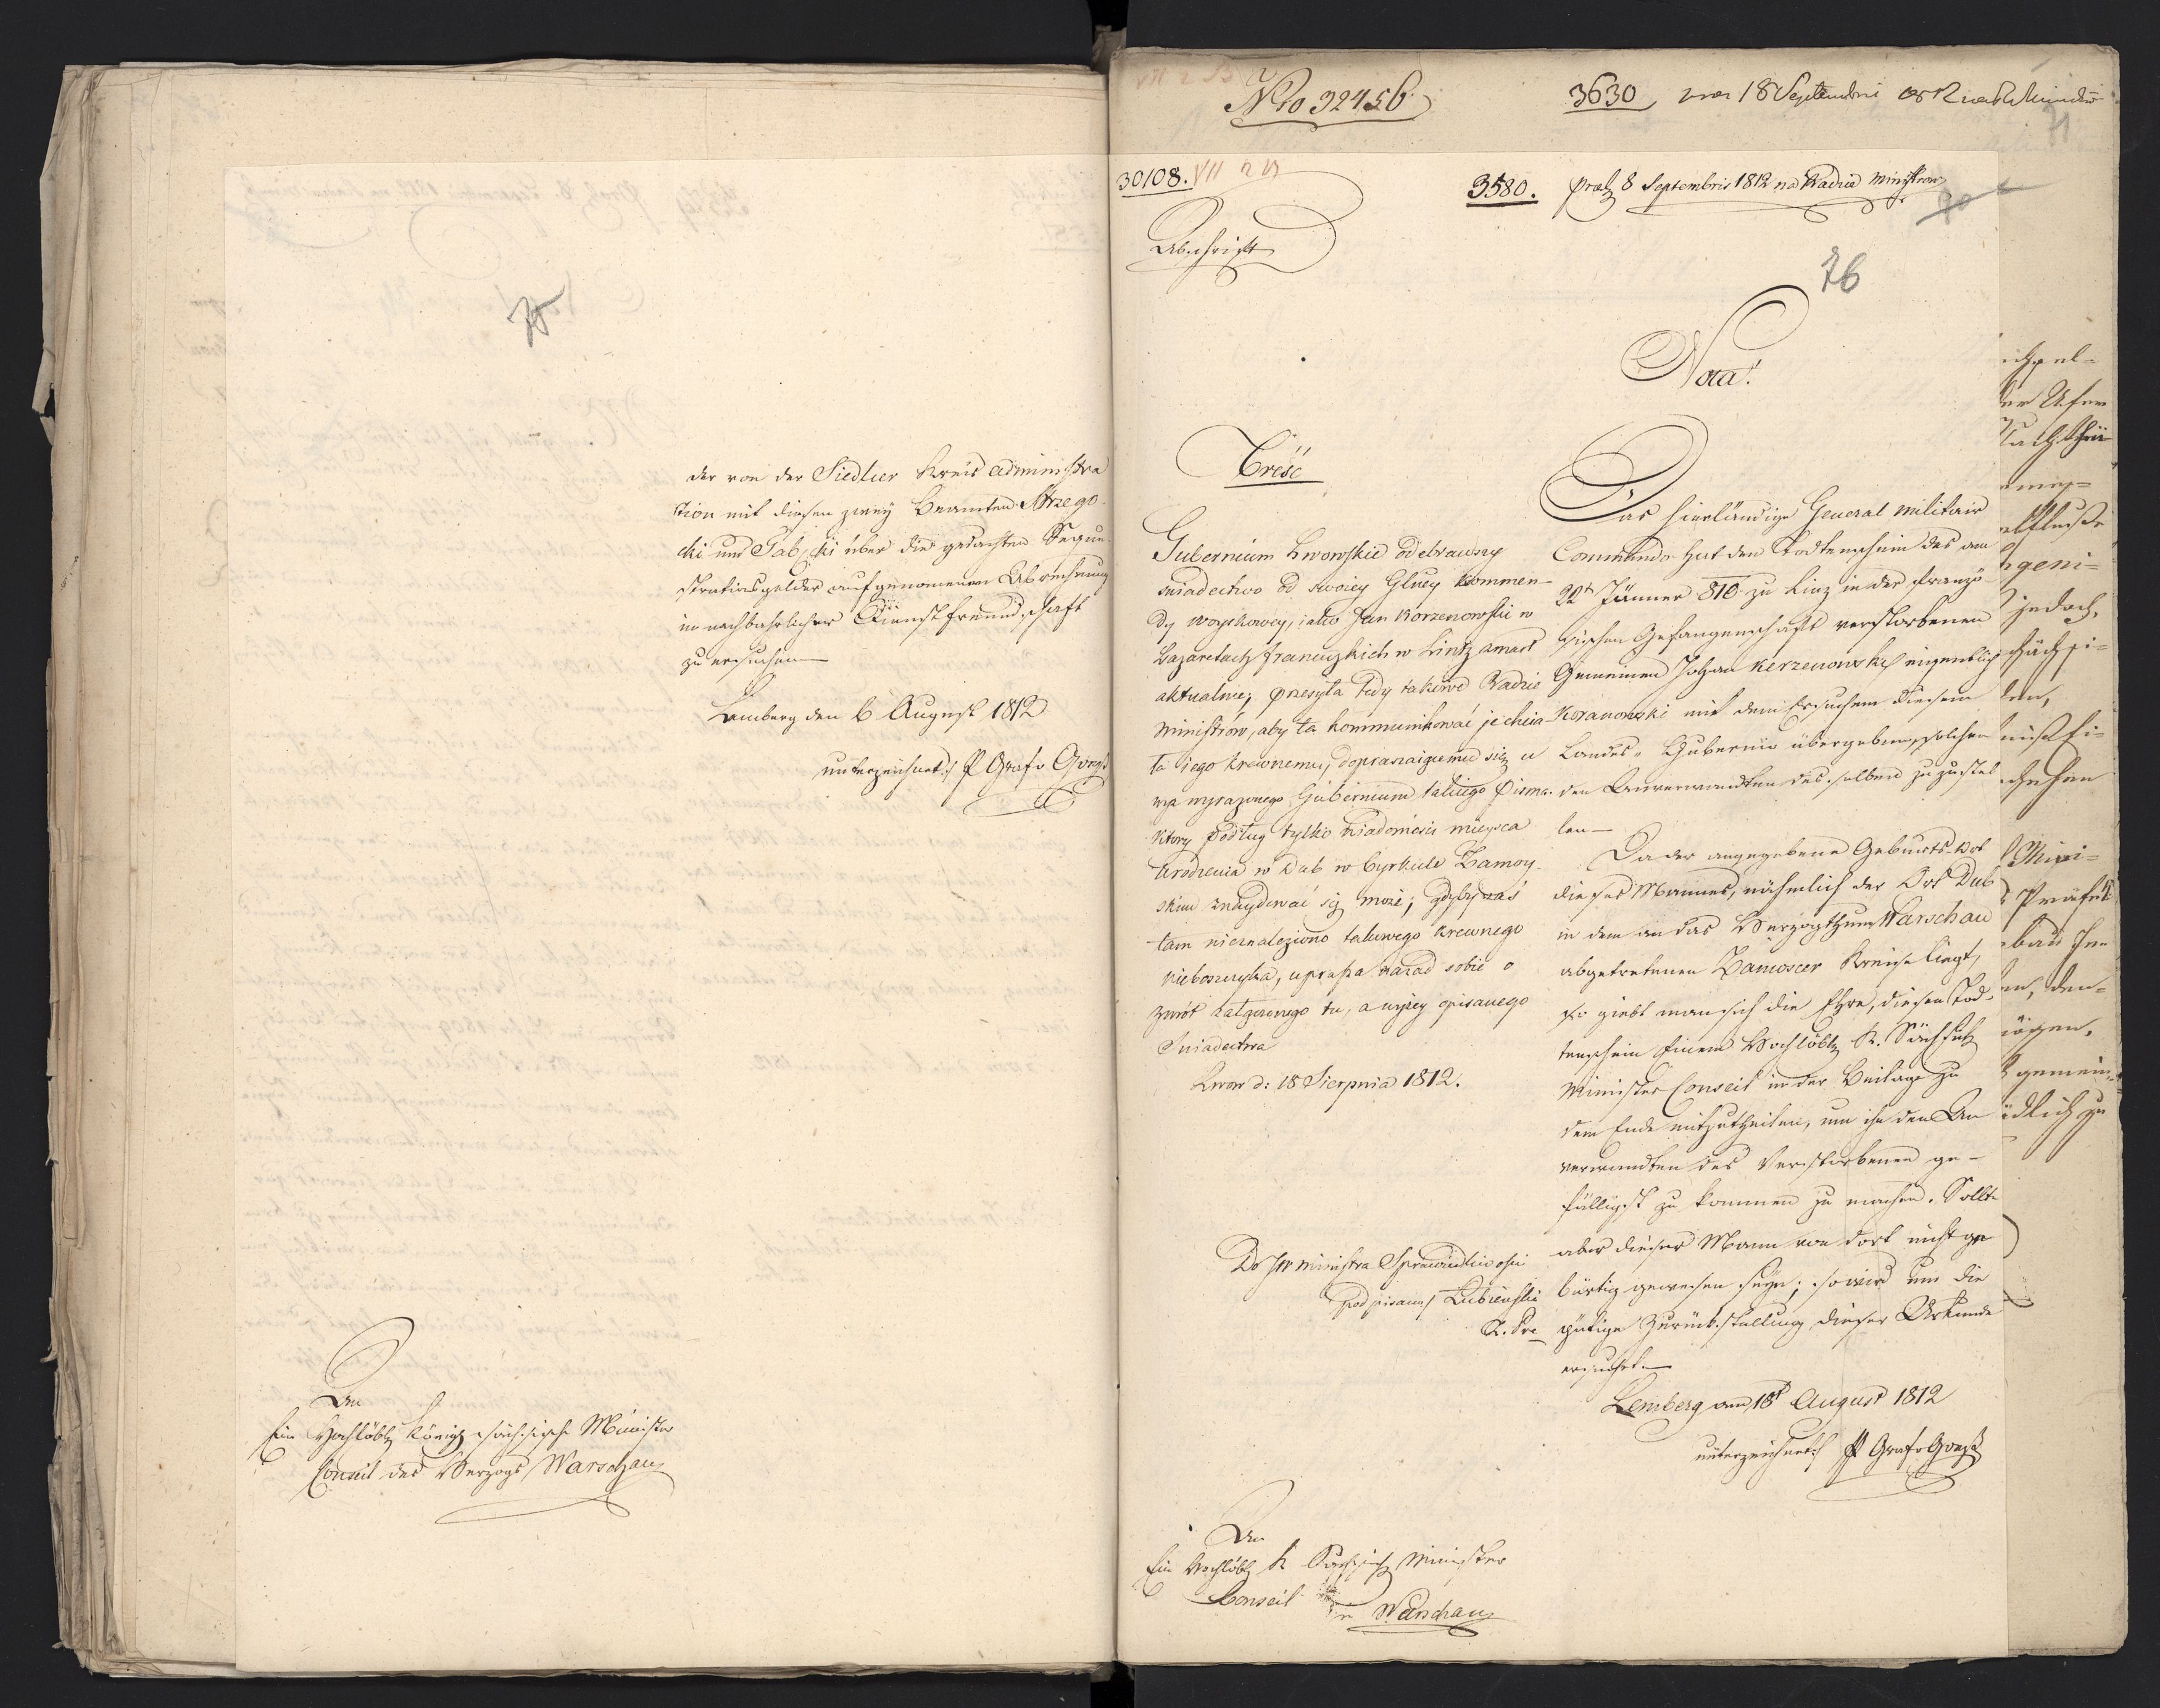 der von der Siedlcer Kreis administra
tion mit diesen zwey Beamten Strzego
cki und über die gedachten Seque
strationsgelder aufgenomenen Abrechnung
in nachbahrlicher Dienstfreundschaft
zu ersuchen
Lemberg den 6 August 1812
unterzeichnet P Graf v Goeß
An
Ein Hochlöbl Königl sächsische Minister
Conseil des Herzogt Warschau
Nro 32456
3630 18 Septembri
71
30108. VII
3580. Praes 8 Septembris 1812 na Radzie Ministrow
Abschrift
76
Nota!
Treść
Gubernium Lwowskie odebrawszy
swiadectwo od swoiey Glney kommen-
dy woyskowey, iako Jan Korzenowski w
Lazaretach francuzkich w Lintz zmarł
aktualnie; przesyła tedy takowe Radzie
Ministrów, aby ta kommunikować je chcia-
ła iego krewnemu, dopraszaiącemu się u
wyz wyrazonego Gubernium takiego pisma.
Ktory podług tylko wiadomości mieysca
Urodzenia w Dub w Cyrkule Zamoy-
skim znaydować się może; gdyby zaś
tam nieznaleziono takowego krewnego
nieboszczyka, uprasza nazad sobie o
zwrót załączonego tu, a wyżey opisanego
Swiadectwa
Lwow d: 18 Sierpnia 1812.
Do JW Ministra Sprawiedliwości
podpisany Łubieński
Das hierländige General Militair
Commando hat den Todtenschein des am
22t Jänner 810 zu Linz in der französ
sischen Gefangenschaft verstorbenen
Gemeinen Johan Kerzenowsky eigentlich
Kozanowski mit dem Ersuchen diesem
Landes-Gubernio übergeben, solchen
den Anverwandten desselben zuzustel
len—
Da der angegebene Geburts-Ort
dieses Mannes, nähmlich der Ort Dub
in dem an das Herzogthum Warschau
abgetretenen Zamoscer Kreise liegt,
so giebt man sich die Ehre, diesen Tod-
tenschein Einem Hochlöbl K. Sächsisch
Minister Conseil in der Beilage zu
dem Ende mitzutheilen, um ihn den An
verwandten des Verstorbenen ge-
fälligst zu kommen zu machen. Sollte
aber dieser Mann von dort nicht ge
bürtig gewesen seyn; so wird um die
gütige Zurückstellung dieser Urkunde
ersucht—
Lemberg am 18t August 1812
unterzeichnet P Graf v Goeß
An
Ein Hochlöbl K Sächsisch Minister
Conseil
in Warschau